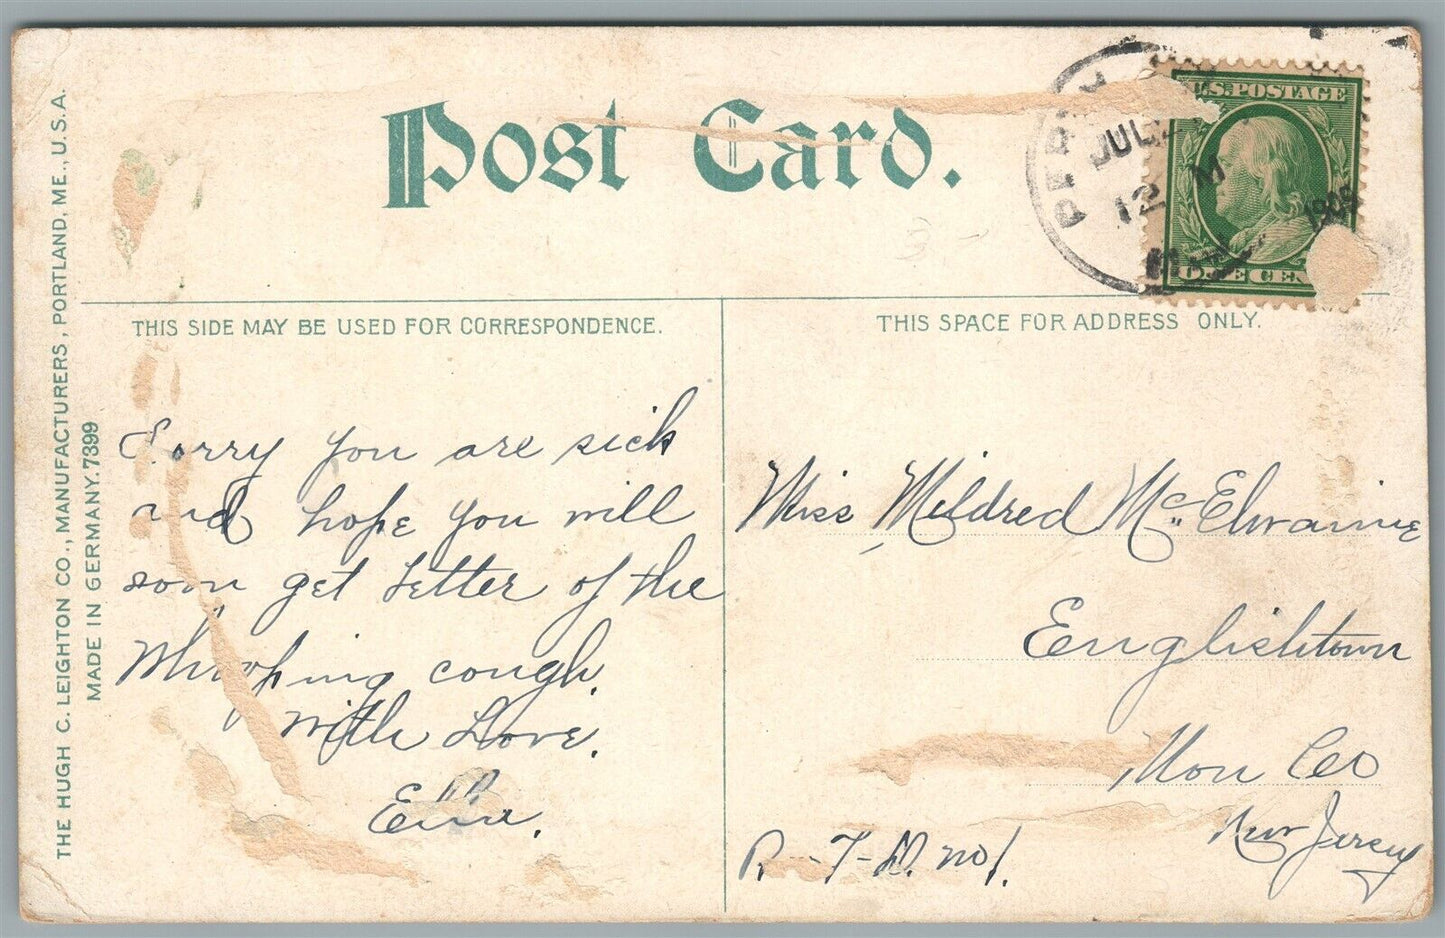 Post Card.
THIS SIDE MAY BE USED FOR CORRESPONDENCE.
THIS SPACE FOR ADDRESS ONLY.
THE HUGH C. LEIGHTON CO., MANUFACTURERS, PORTLAND, ME., U.S.A.
MADE IN GERMANY. 7399
U.S. POSTAGE
ONE CENT
JUL
12 M
1909
3-
Sorry you are sick
and hope you will
soon get better of the
Whooping cough.
With Love.
Ella.
Miss Mildred McElwaine
Englishtown
Mon Co
New Jersey
R-F-D. no 1.